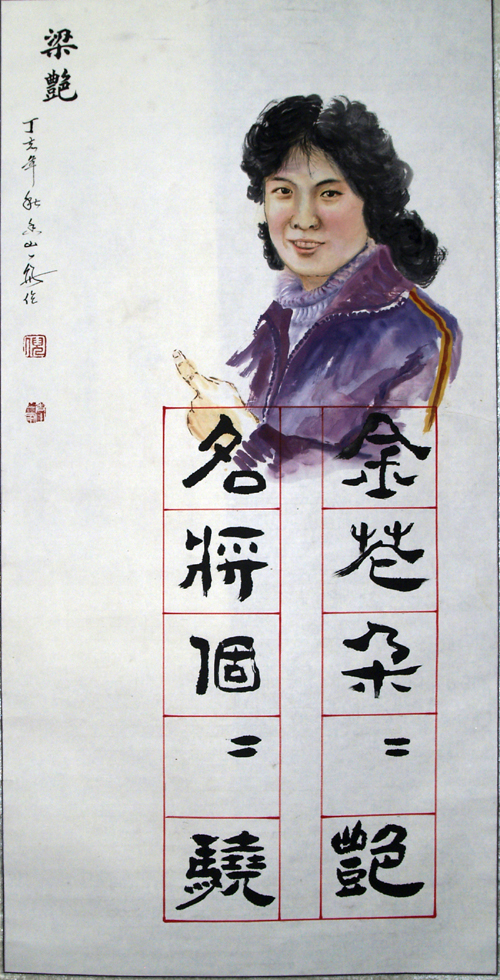 金花朵=艷
名將個=驍
梁艷
丁亥年秋山作